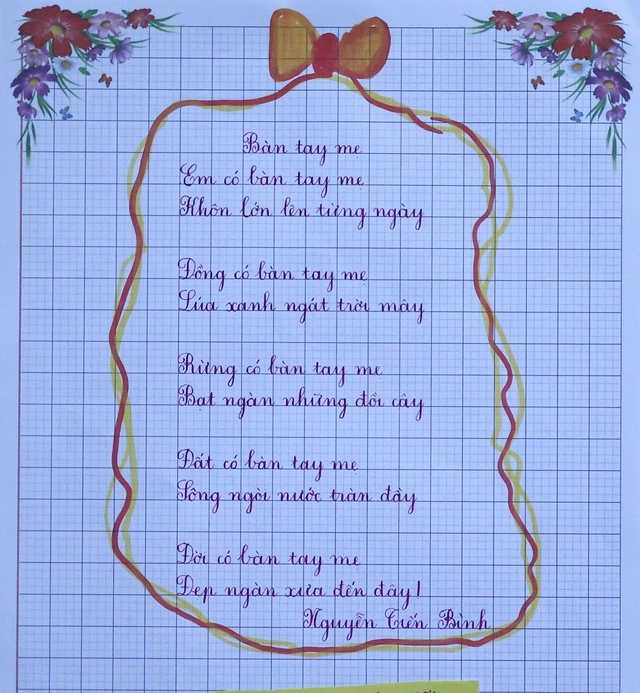 Bàn tay mẹ
Em có bàn tay mẹ
Khôn lớn lên từng ngày
Đồng có bàn tay mẹ
Lúa xanh ngát trời mây
Rừng có bàn tay mẹ
Bạt ngàn những đồi cây
Đất có bàn tay mẹ
Sông ngòi nước tràn đầy
Đời có bàn tay mẹ
Đẹp ngàn xưa đến đây!
Nguyễn Tiến Bình